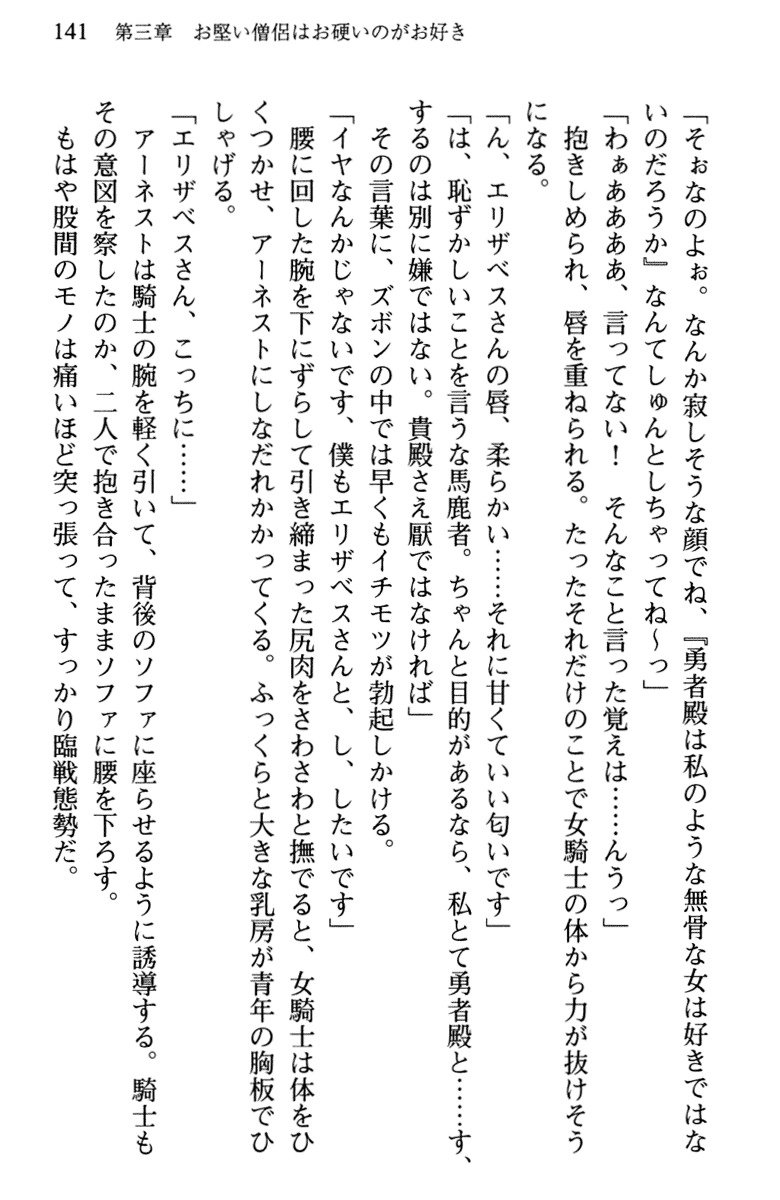 141　第三章　お堅い僧侶はお硬いのがお好き
「そぉなのよぉ。なんか寂しそうな顔でね、『勇者殿は私のような無骨な女は好きではな
いのだろうか』なんてしゅんとしちゃってね～っ」
「わぁああああ、言ってない！　そんなこと言った覚えは……んうっ」
抱きしめられ、唇を重ねられる。たったそれだけのことで女騎士の体から力が抜けそう
になる。
「ん、エリザベスさんの唇、柔らかい……それに甘くていい匂いです」
「は、恥ずかしいことを言うな馬鹿者。ちゃんと目的があるなら、私とて勇者殿と……す、
するのは別に嫌ではない。貴殿さえ厭ではなければ」
その言葉に、ズボンの中では早くもイチモツが勃起しかける。
「イヤなんかじゃないです、僕もエリザベスさんと、し、したいです」
腰に回した腕を下にずらして引き締まった尻肉をさわさわと撫でると、女騎士は体をひ
くつかせ、アーネストにしなだれかかってくる。ふっくらと大きな乳房が青年の胸板でひ
しゃげる。
「エリザベスさん、こっちに……」
アーネストは騎士の腕を軽く引いて、背後のソファに座らせるように誘導する。騎士も
その意図を察したのか、二人で抱き合ったままソファに腰を下ろす。
もはや股間のモノは痛いほど突っ張って、すっかり臨戦態勢だ。